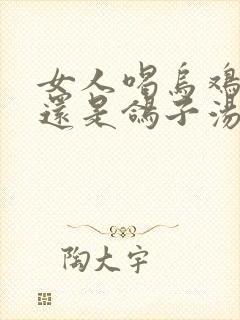 女人喝烏鸡
還是鴿子湯
陶大宇